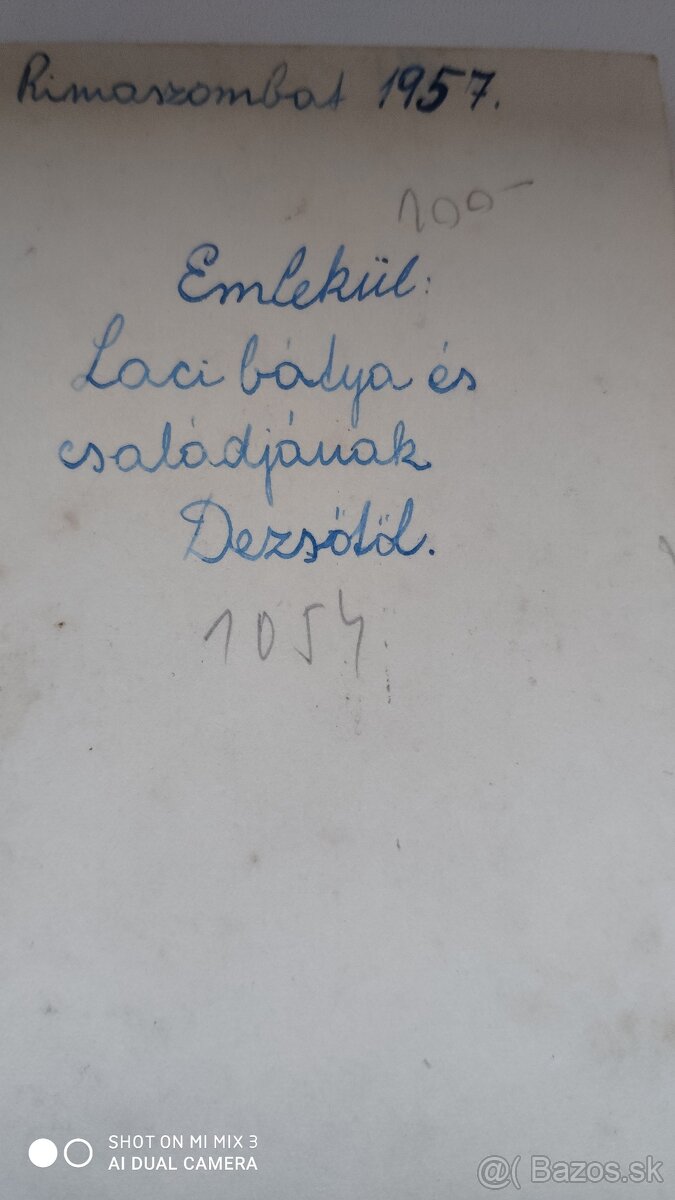 Rimaszombat 1957.
100-
Emlekül:
Laci bátya és
családjának
Dezsőtöl.
1054
SHOT ON MI MIX 3
AI DUAL CAMERA
@( Bazos.sk